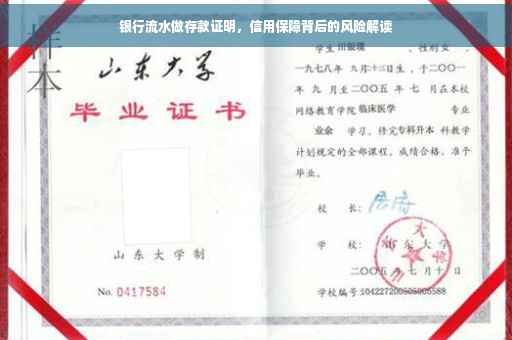 银行流水做存款证明，信用保障背后的风险解读
样本
山东大学
毕业证书
山东大学制
No. 0417584
学生田俶瑗，性别女，
一九七八年 九月十三日生，于二〇〇一
年 九 月至二〇〇五 年 七 月在本校
网络教育学院 临床医学 专业
业余 学习，修完专科升本科教学
计划规定的全部课程，成绩合格，准予
毕业。
校 长：
学 校：山东大学
二〇〇五 年 七 月 十 日
学校编号:104227200505005588